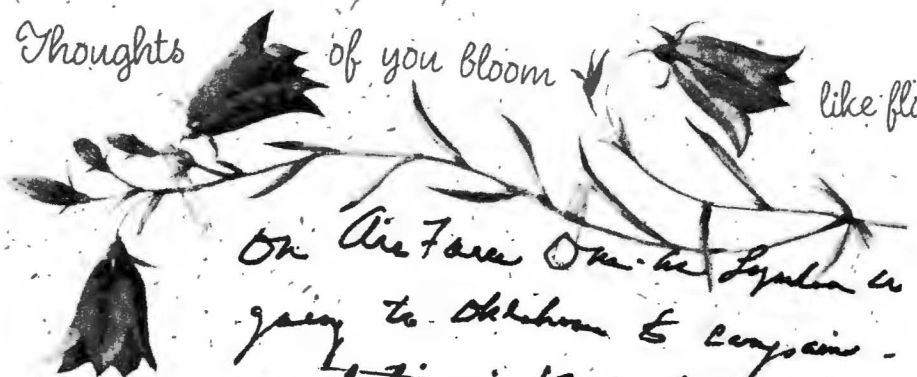 Thoughts of you bloom like
On Air Force One - as Lyndon is
going to Oklahoma to campaign -